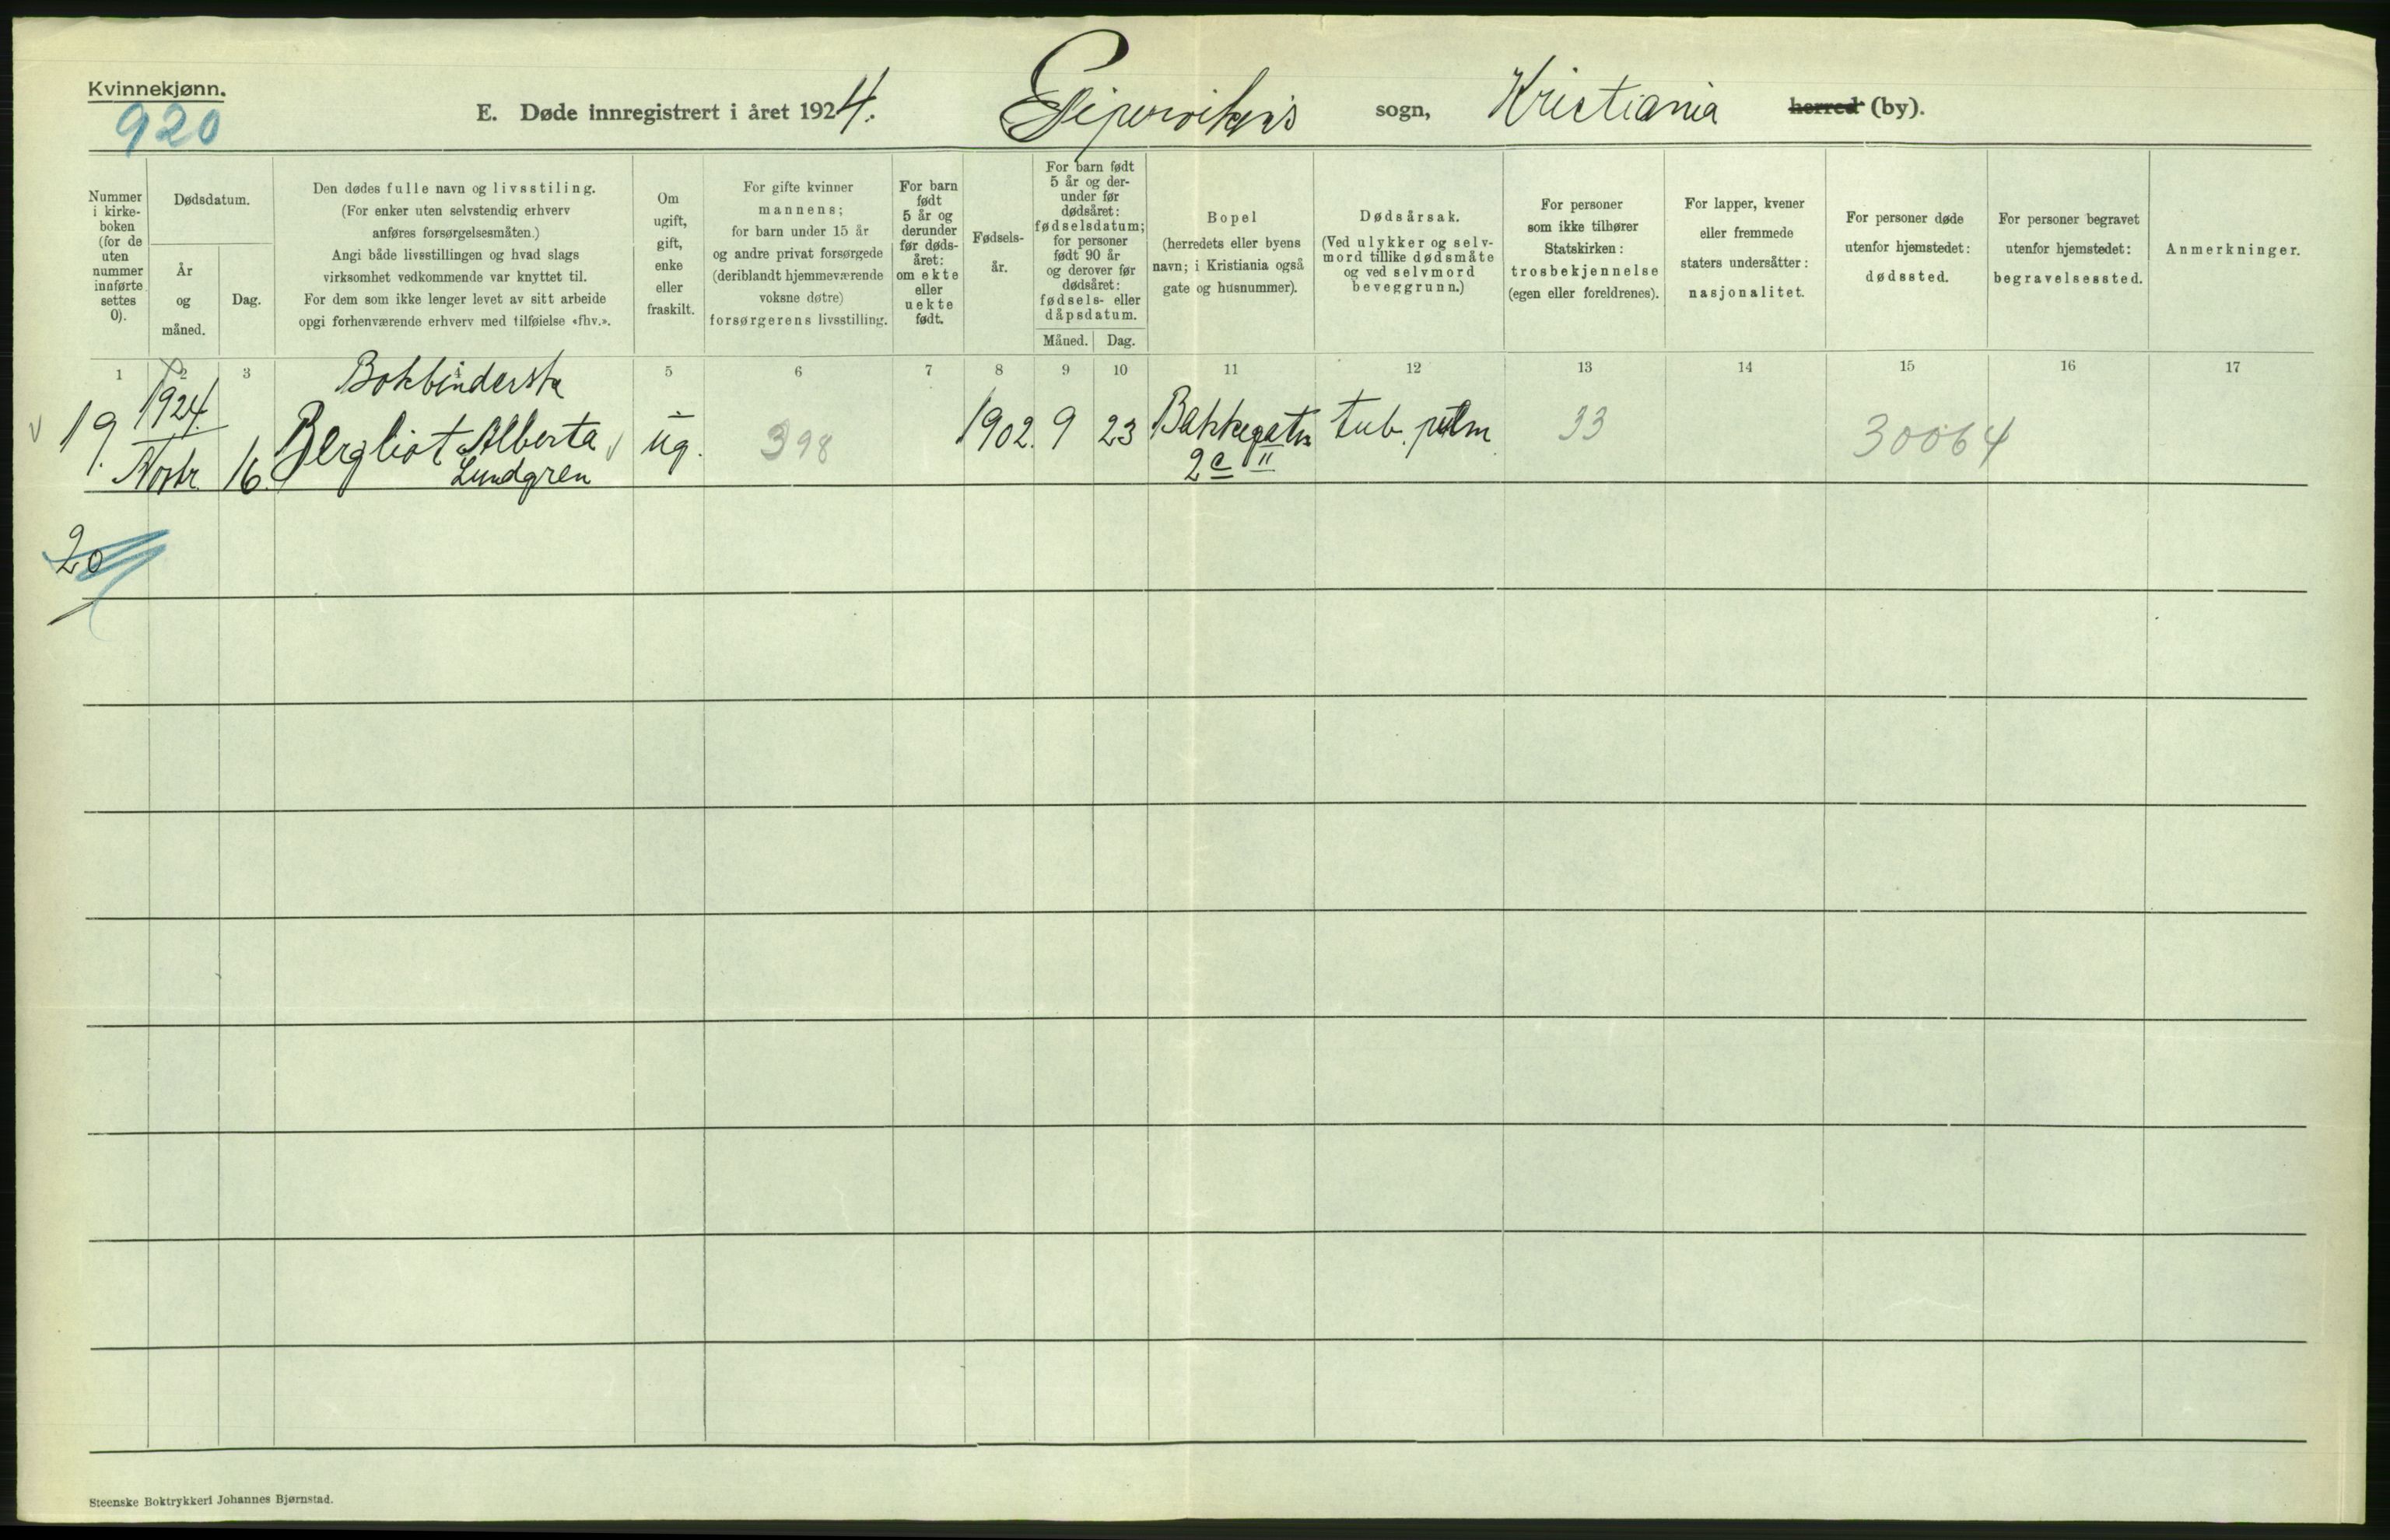 Kvinnekjønn.
920
E. Døde innregistrert i året 1924. Pipervikens sogn, Kristiania herred (by).
Nummer
i kirke-
boken
(for de
uten
nummer
innførte
settes
0).
Dødsdatum.
År
og
måned.
Dag.
Den dødes fulle navn og livsstiling.
(For enker uten selvstendig erhverv
anføres forsørgelsesmåten.)
Angi både livsstillingen og hvad slags
virksomhet vedkommende var knyttet til.
For dem som ikke lenger levet av sitt arbeide
opgi forhenværende erhverv med tilføielse «fhv.».
Om
ugift,
gift,
enke
eller
fraskilt.
For gifte kvinner
mannens;
for barn under 15 år
og andre privat forsørgede
(deriblandt hjemmeværende
voksne døtre)
forsørgerens livsstilling.
For barn
født
5 år og
derunder
før døds-
året:
om ekte
eller
uekte
født.
Fødsels-
år.
For barn født
5 år og der-
under før
dødsåret:
fødselsdatum;
for personer
født 90 år
og derover før
dødsåret:
fødsels- eller
dåpsdatum.
Måned. Dag.
Bopel
(herredets eller byens
navn; i Kristiania også
gate og husnummer).
Dødsårsak.
(Ved ulykker og selv-
mord tillike dødsmåte
og ved selvmord
beveggrunn.)
For personer
som ikke tilhører
Statskirken:
trosbekjennelse
(egen eller foreldrenes).
For lapper, kvener
eller fremmede
staters undersåtter:
nasjonalitet.
For personer døde
utenfor hjemstedet:
dødssted.
For personer begravet
utenfor hjemstedet:
begravelsessted.
Anmerkninger.
1 2 3 4 5 6 7 8 9 10 11 12 13 14 15 16 17
Bokbinderske
1924.
19. Novbr. 16. Bergliot Alberta ug. 398 1902. 9 23 Bakkegaten tub. pulm. 33 30064
Lundgren 2c II
20
Steenske Boktrykkeri Johannes Bjørnstad.